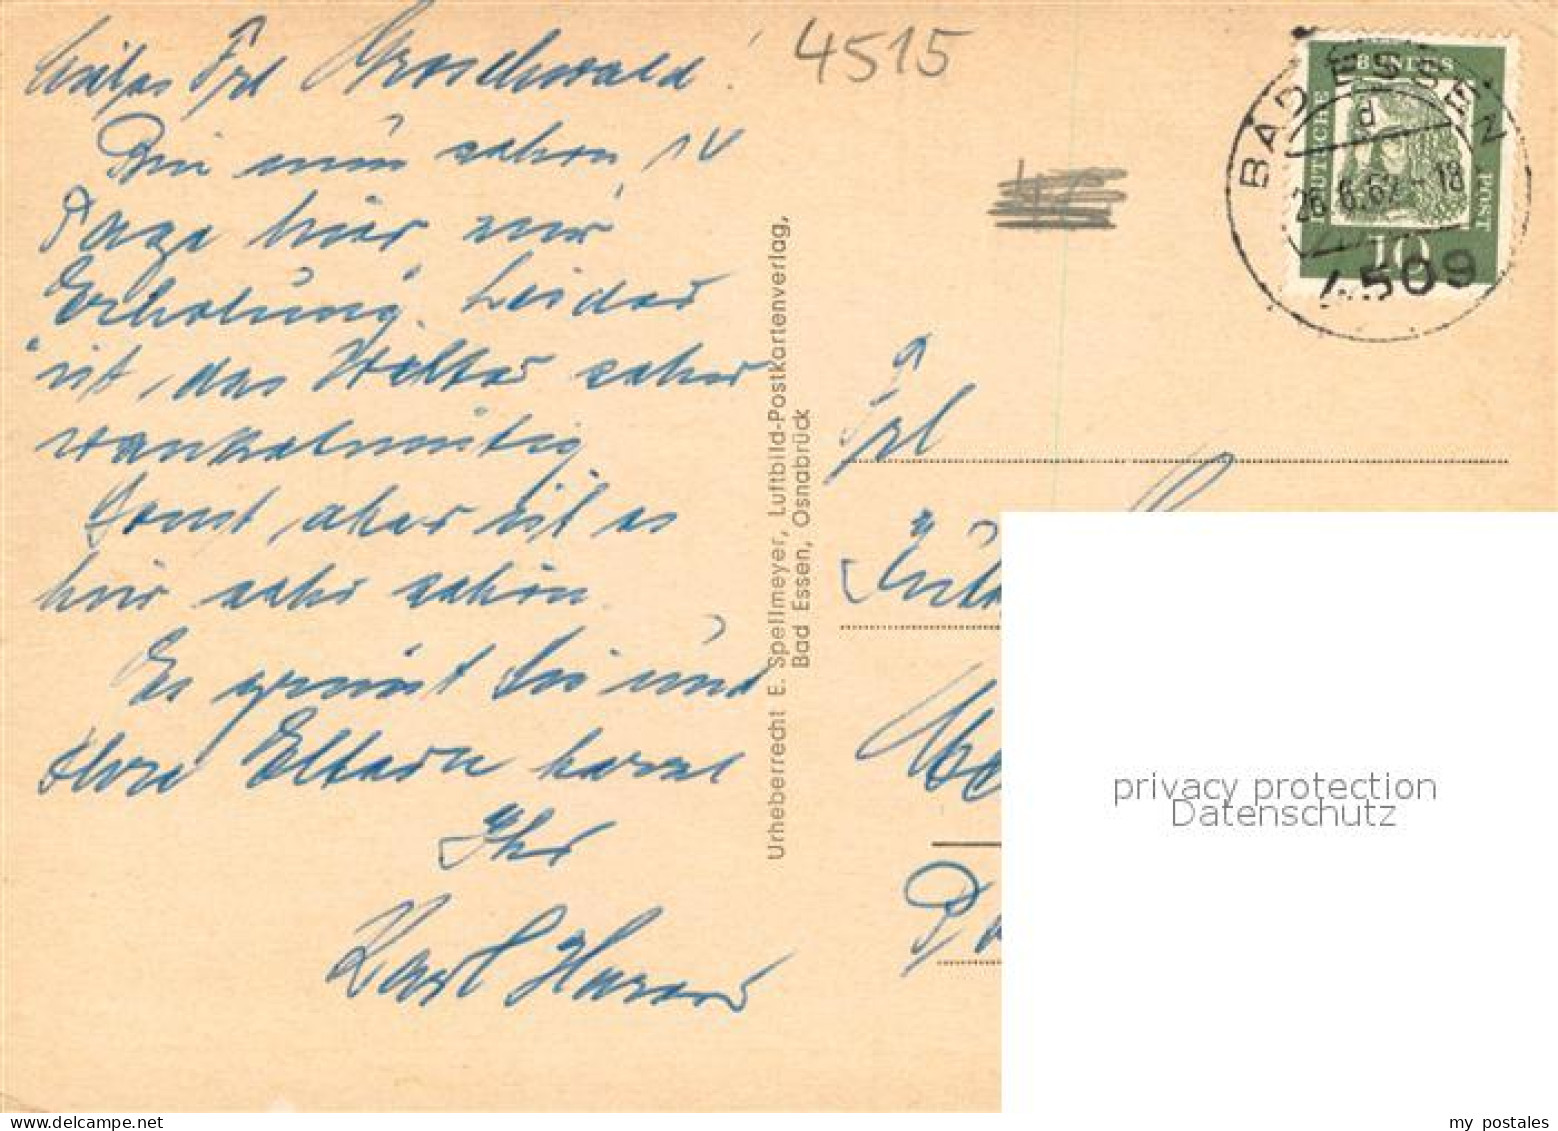 Liebes Frl Groschwald!
Bin nun schon 14
Tage hier zur
Erholung. Leider
ist das Wetter sehr
wankelmütig
Sonst aber ist es
hier sehr schön.
Es grüsst Sie und
Ihre Eltern herzl
Ihr
Karl
4515
Urheberrecht E. Spellmeyer, Luftbild-Postkartenverlag,
Bad Essen, Osnabrück
BAD ESSEN
d
26.6.62-18
4509
DEUTSCHE
BUNDES
POST
10
Frl
privacy protection
Datenschutz
delcampe.net
my_postales